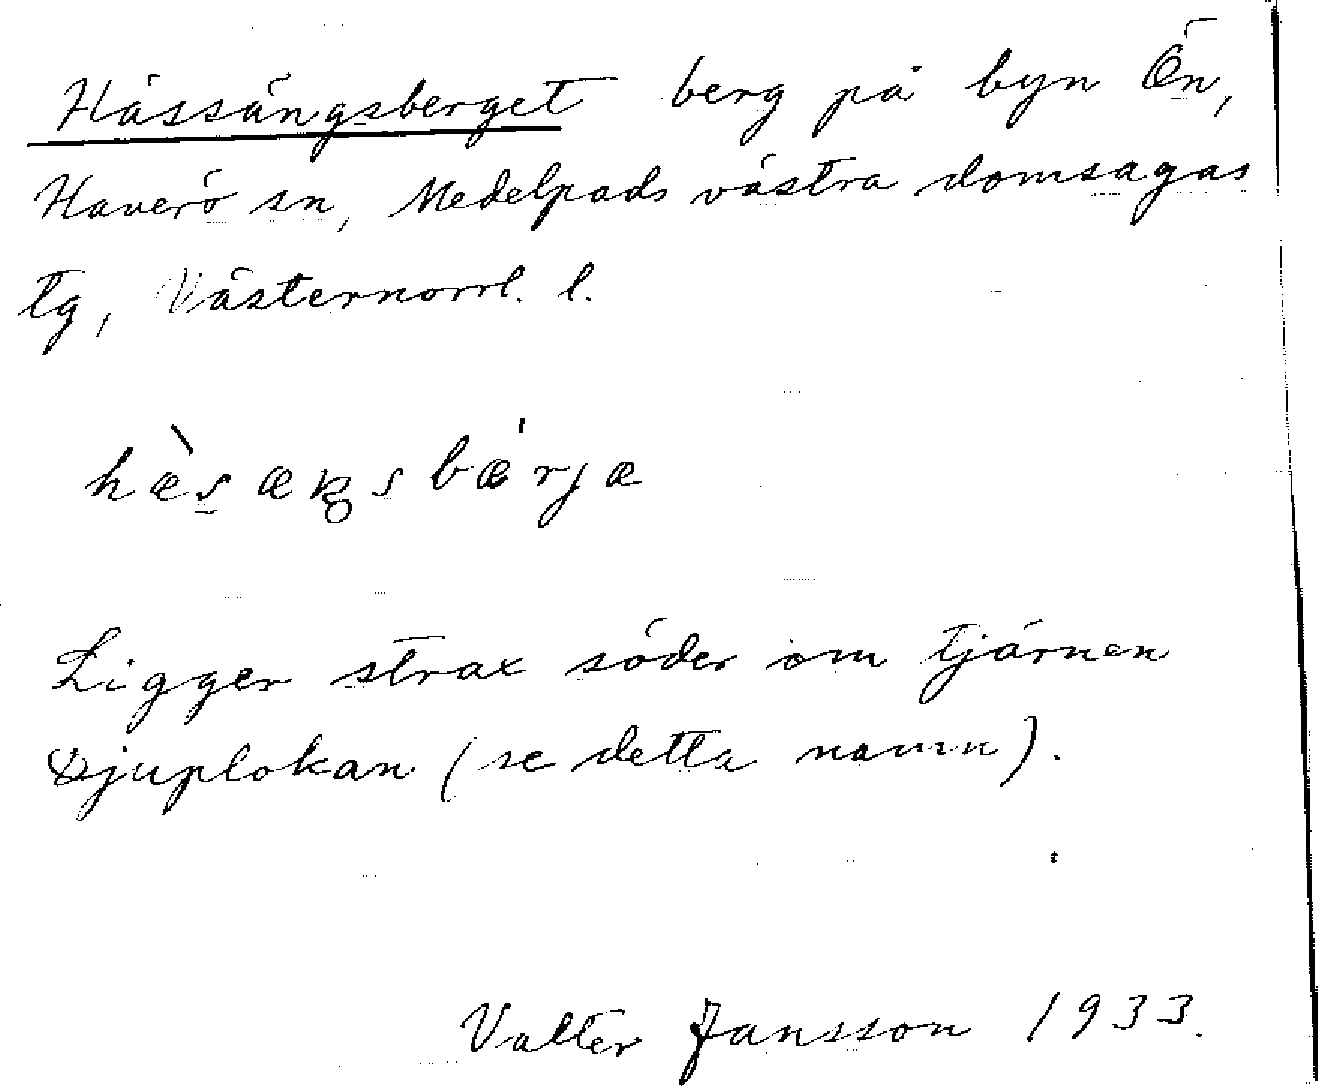 Hässängsberget berg på byn Ön,
Haverö sn, Medelpads västra domsagas
tg, Västernorrl. l.
hæ̀sæŋsbæ'rjæ
Ligger strax söder om tjärnen
Djuplokan (se detta namn).
Valter Jansson 1933.